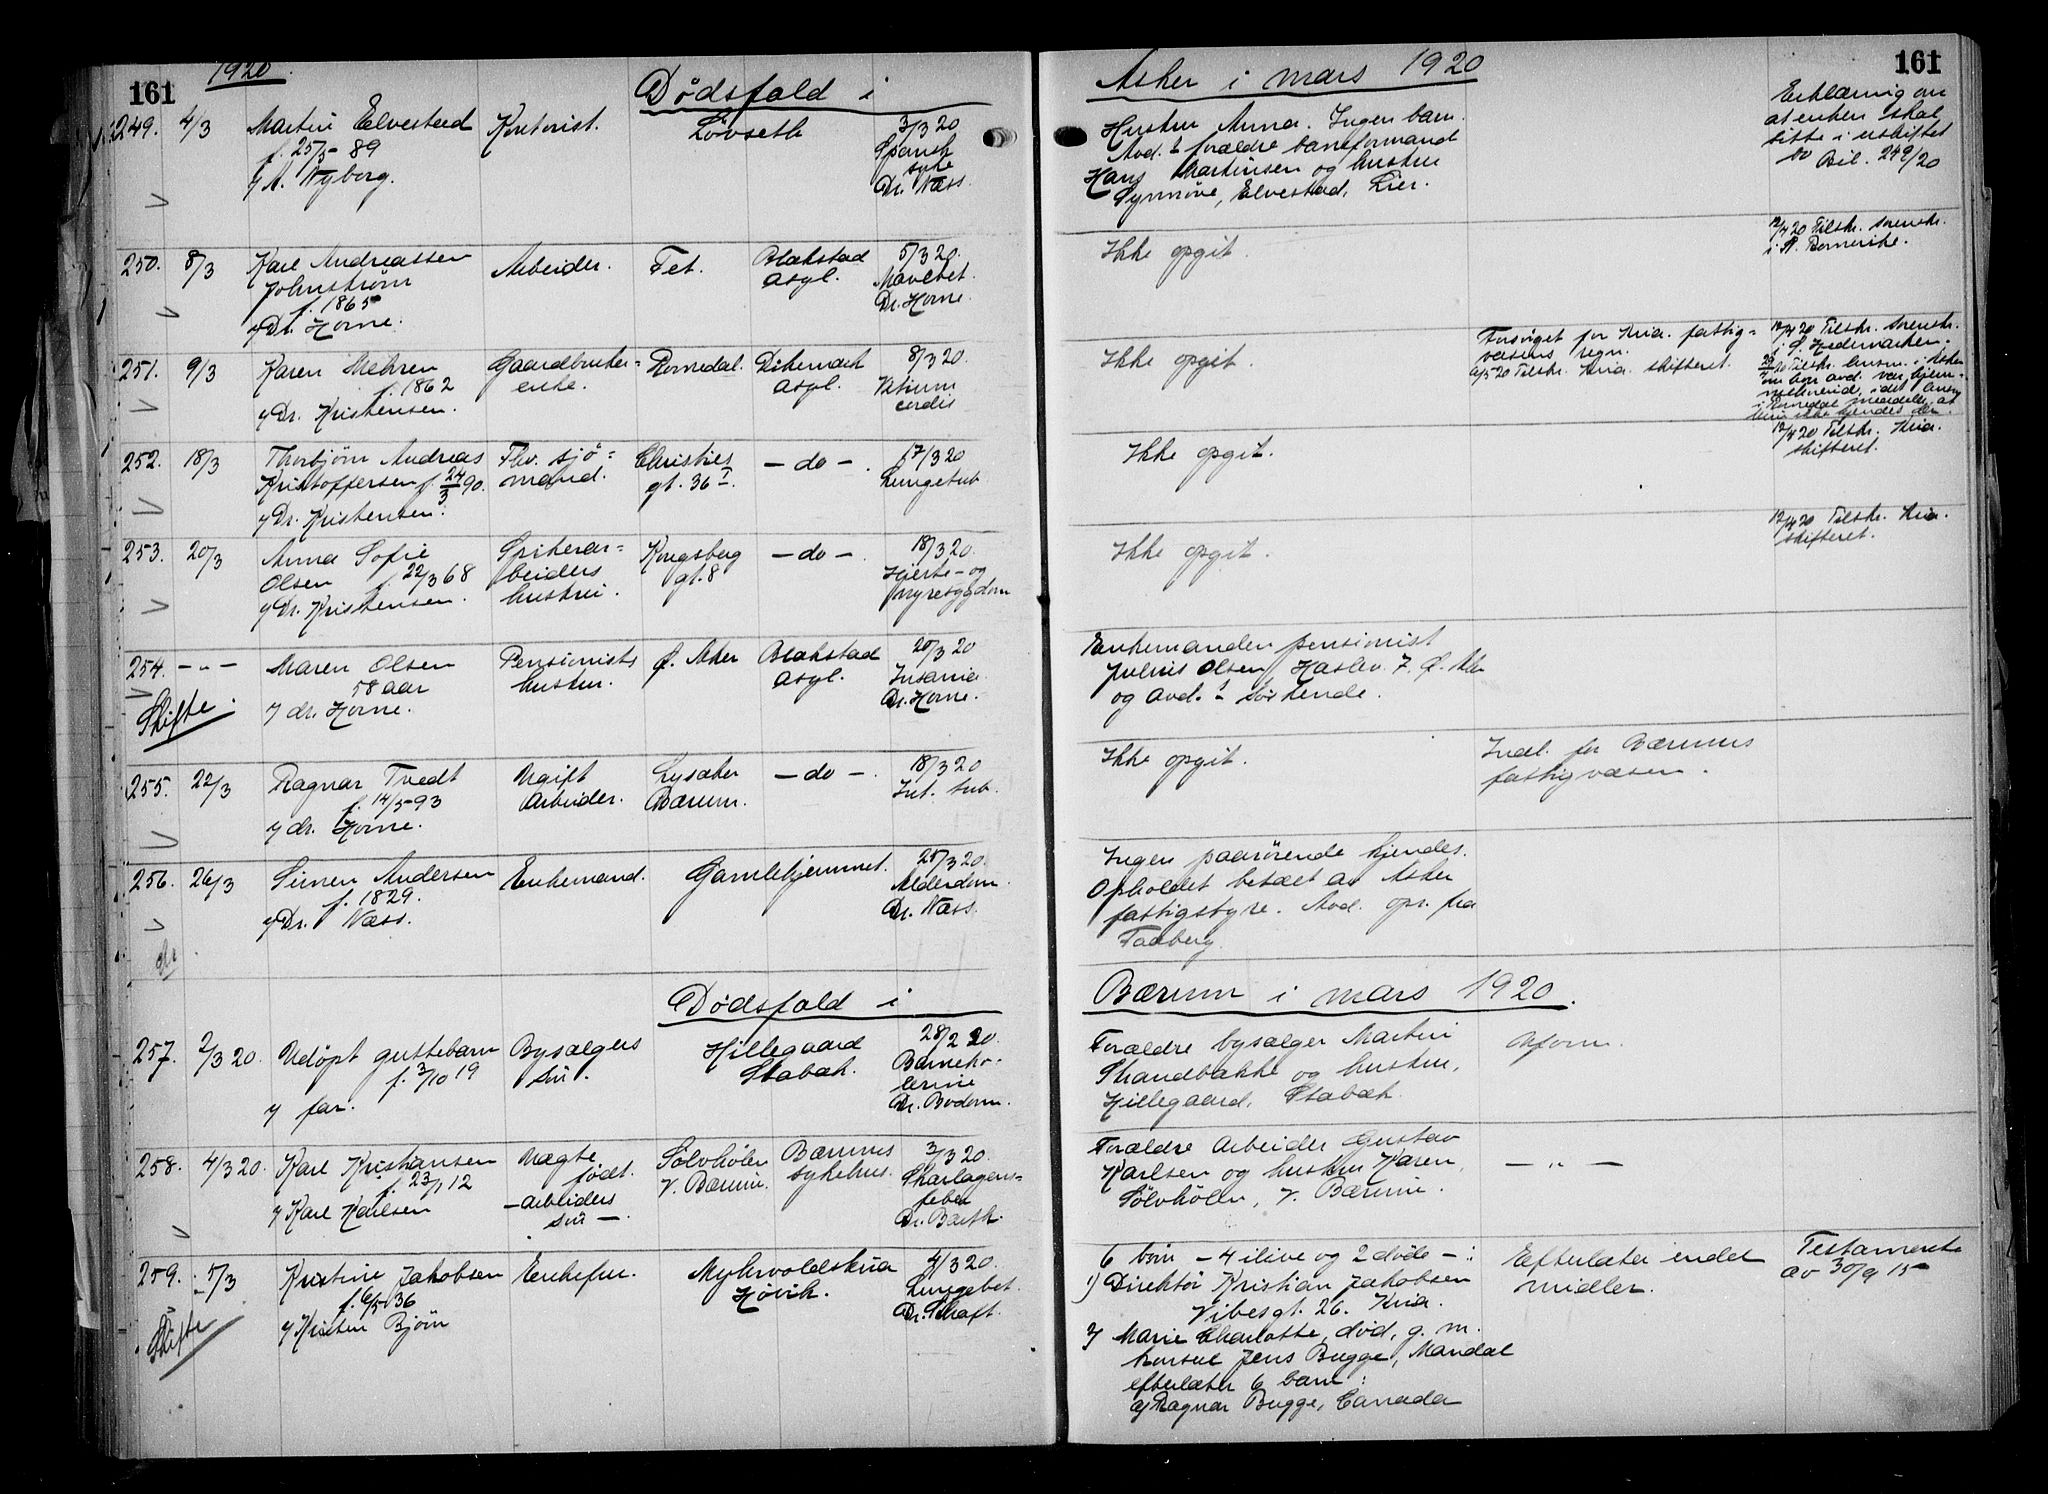 161
1920.
Dødsfald i
Asker i mars 1920
161
249. 4/3
Martin Elvestad
f. 25/5- 89
v/ A. Nyborg.
Kontorist.
Løvseth
3/3 20
Spansk
syke
Dr. Næss.
Hustru Anna. Ingen barn.
Avd.s forældre baneformand
Hans Martinsen og hustru
Synnøve, Elvestad, Lier.
Erklæring om
at enken skal
sitte i uskiftet
bo Bil. 249/20
250. 8/3
Karl Andreassen
Johnstrøm
f. 1865
v/ Dr. Horne.
Arbeider.
Fet.
Blakstad
asyl.
5/3 20.
Dr. Horne.
Ikke opgit.
12/4 20 Tilskr. sorenskr.
i N. Romerike.
251. 9/3
Karen Mehren
f. 1862
v/ Dr. Kristensen.
Gaardbruker=
enke.
Romedal.
Dikemark
asyl.
8/3 20.
Vitium
cordis
Ikke opgit.
Forsørget for Kria. fattig=
væsens regn.
6/5-20 Tilskr. Kria. skifteret.
12/4 20 Tilskr. sorenskr.
i S. Hedemarken.
252. 18/3
Thorbjørn Andreas
Kristoffersen f. 24/3 90.
v/ Dr. Kristensen.
Fhv. sjø=
mand.
Christies
gt. 36 I
— do —.
17/3 20
Lungetub
Ikke opgit.
12/4 20 Tilskr. Kria.
skifteret.
253. 20/3
Anna Sofie
Olsen f. 22/3 68
v/ Dr. Kristensen.
Spikerar=
beiders
hustru.
Kongsberg
gt. 8
— do —.
18/3 20.
Hjerte- og
nyresygdom
Ikke opgit.
12/4 20 Tilskr. Kria.
skifteret.
254. — „ —
Skifte.
Maren Olsen
58 aar
v/ dr. Horne.
Pensionists
hustru.
Ø. Aker
Blakstad
asyl.
20/3 20
Insania
Dr. Horne.
Enkemanden pensionist
Julius Olsen, Haslev. 7. Ø. Aker
og avd.s søskende.
255. 22/3
Ragnar Tvedt
f. 14/5-93
v/ dr. Horne.
Ugift
arbeider.
Lysaker
Bærum.
— do —.
18/3 20
Int. tub.
Ikke opgit.
Indl. for Bærums
fattigvæsen.
256. 26/3
Simen Andersen
f. 1829.
v/ Dr. Næss.
Enkemand.
Gamlehjemmet.
25/3 20.
Alderdom.
Dr. Næss.
Ingen paarørende kjendes.
Opholdet betalt av Asker
fattigstyre. Avd. opr. fra
Faaberg.
Dødsfald i
Bærum i mars 1920.
257. 2/3 20.
Udøpt guttebarn
f. 3/10 19
v/ far.
Bysælgers
søn.
Hillegaard
Stabæk.
28/2 20.
Barneko-
lerine
Dr. Bodom.
Forældre bysælger Martin
Strandbakke og hustru,
Hillegaard, Stabæk.
Uform.
258. 4/3 20.
Karl Kristiansen
f. 23/1 12
v/ Karl Karlsen
Uægte
født.
— arbeiders
søn —.
Sølvhølen
V. Bærum.
Bærums
sykehus.
3/3 20.
Skarlagens=
feber
Dr. Barth.
Forældre arbeider Gustav
Karlsen og hustru Karen,
Sølvhølen, V. Bærum.
— „ —
259. 5/3
Skifte
Kristine Jakobsen
f. 6/5 36
v/ Kristen Bjørn
Enkefru.
Myhrvoldskria
Høvik.
4/3 20.
Lungebet.
Dr. Schaft.
6 barn — 4 ilive og 2 døde —:
1) Direktør Kristian Jakobsen
Vibesgt. 26. Kria.
2) Marie Charlotte, død, g. m.
konsul Jens Bugge, Mandal
efterlater 6 barn:
a) Ragnar Bugge, Canada
Efterlater endel
midler.
Testamente
av 30/9 15